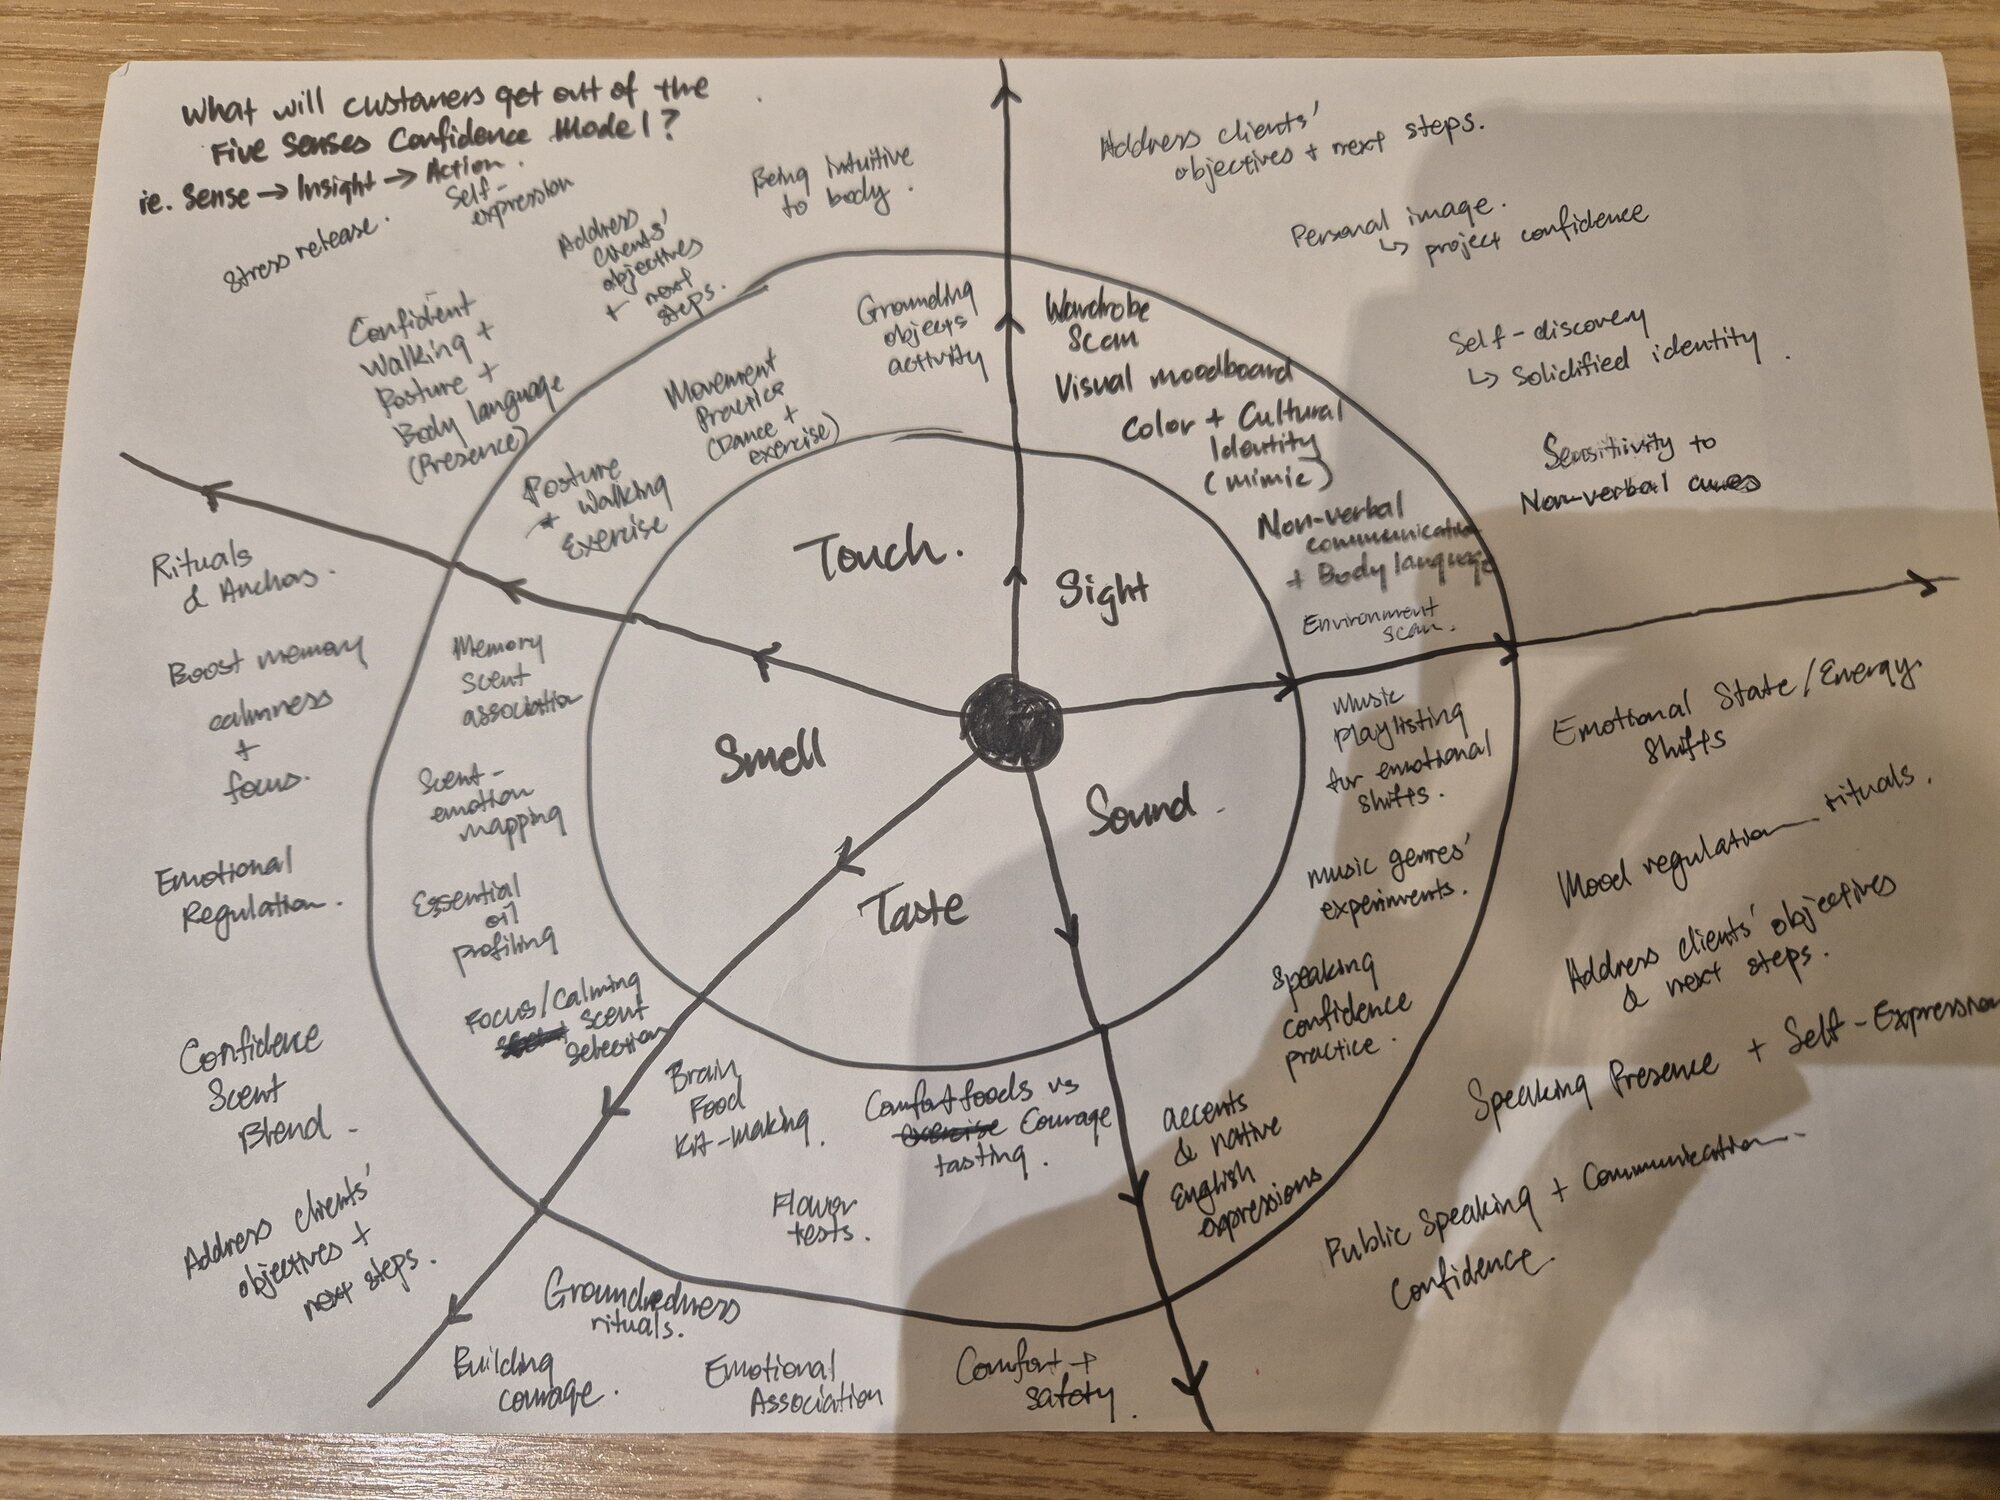 What will customers get out of the
Five Senses Confidence Model?
ie. Sense → Insight → Action.
Stress release.
Self-
expression
Address
clients'
objectives
+ next
steps.
Being intuitive
to body.
Confident
Walking +
Posture +
Body language
(Presence)
Address clients'
objectives + next steps.
Personal image.
↳ project confidence
Self-discovery
↳ Solidified identity.
Sensitivity to
Non-verbal cues
Grounding
objects
activity
Movement
Practice
(Dance +
exercise)
Posture
+ Walking
Exercise
Wardrobe
Scan
Visual moodboard
Color + Cultural
Identity
(mimic)
Non-verbal
communication
+ Body language
Environment
scan.
Touch.
Sight
Smell
Sound.
Taste
Rituals
& Anchors.
Boost memory
calmness
+
focus.
Emotional
Regulation.
Confidence
Scent
Blend.
Address clients'
objectives +
next steps.
Memory
scent
association
Scent-
emotion
mapping
Essential
oil
profiling
Focus/Calming
scent
selection
Music
playlisting
for emotional
shifts.
Music genres'
experiments.
Speaking
confidence
practice.
accents
& native
English
expressions
Emotional State/Energy
Shifts
Mood regulation rituals.
Address clients' objectives
& next steps.
Speaking Presence + Self-Expression
Public Speaking + Communication
Confidence.
Brain
Food
Kit-making.
Comfort foods vs
exercise Courage
tasting.
Flower
tests.
Groundedness
rituals.
Building
courage.
Emotional
Association
Comfort +
safety.